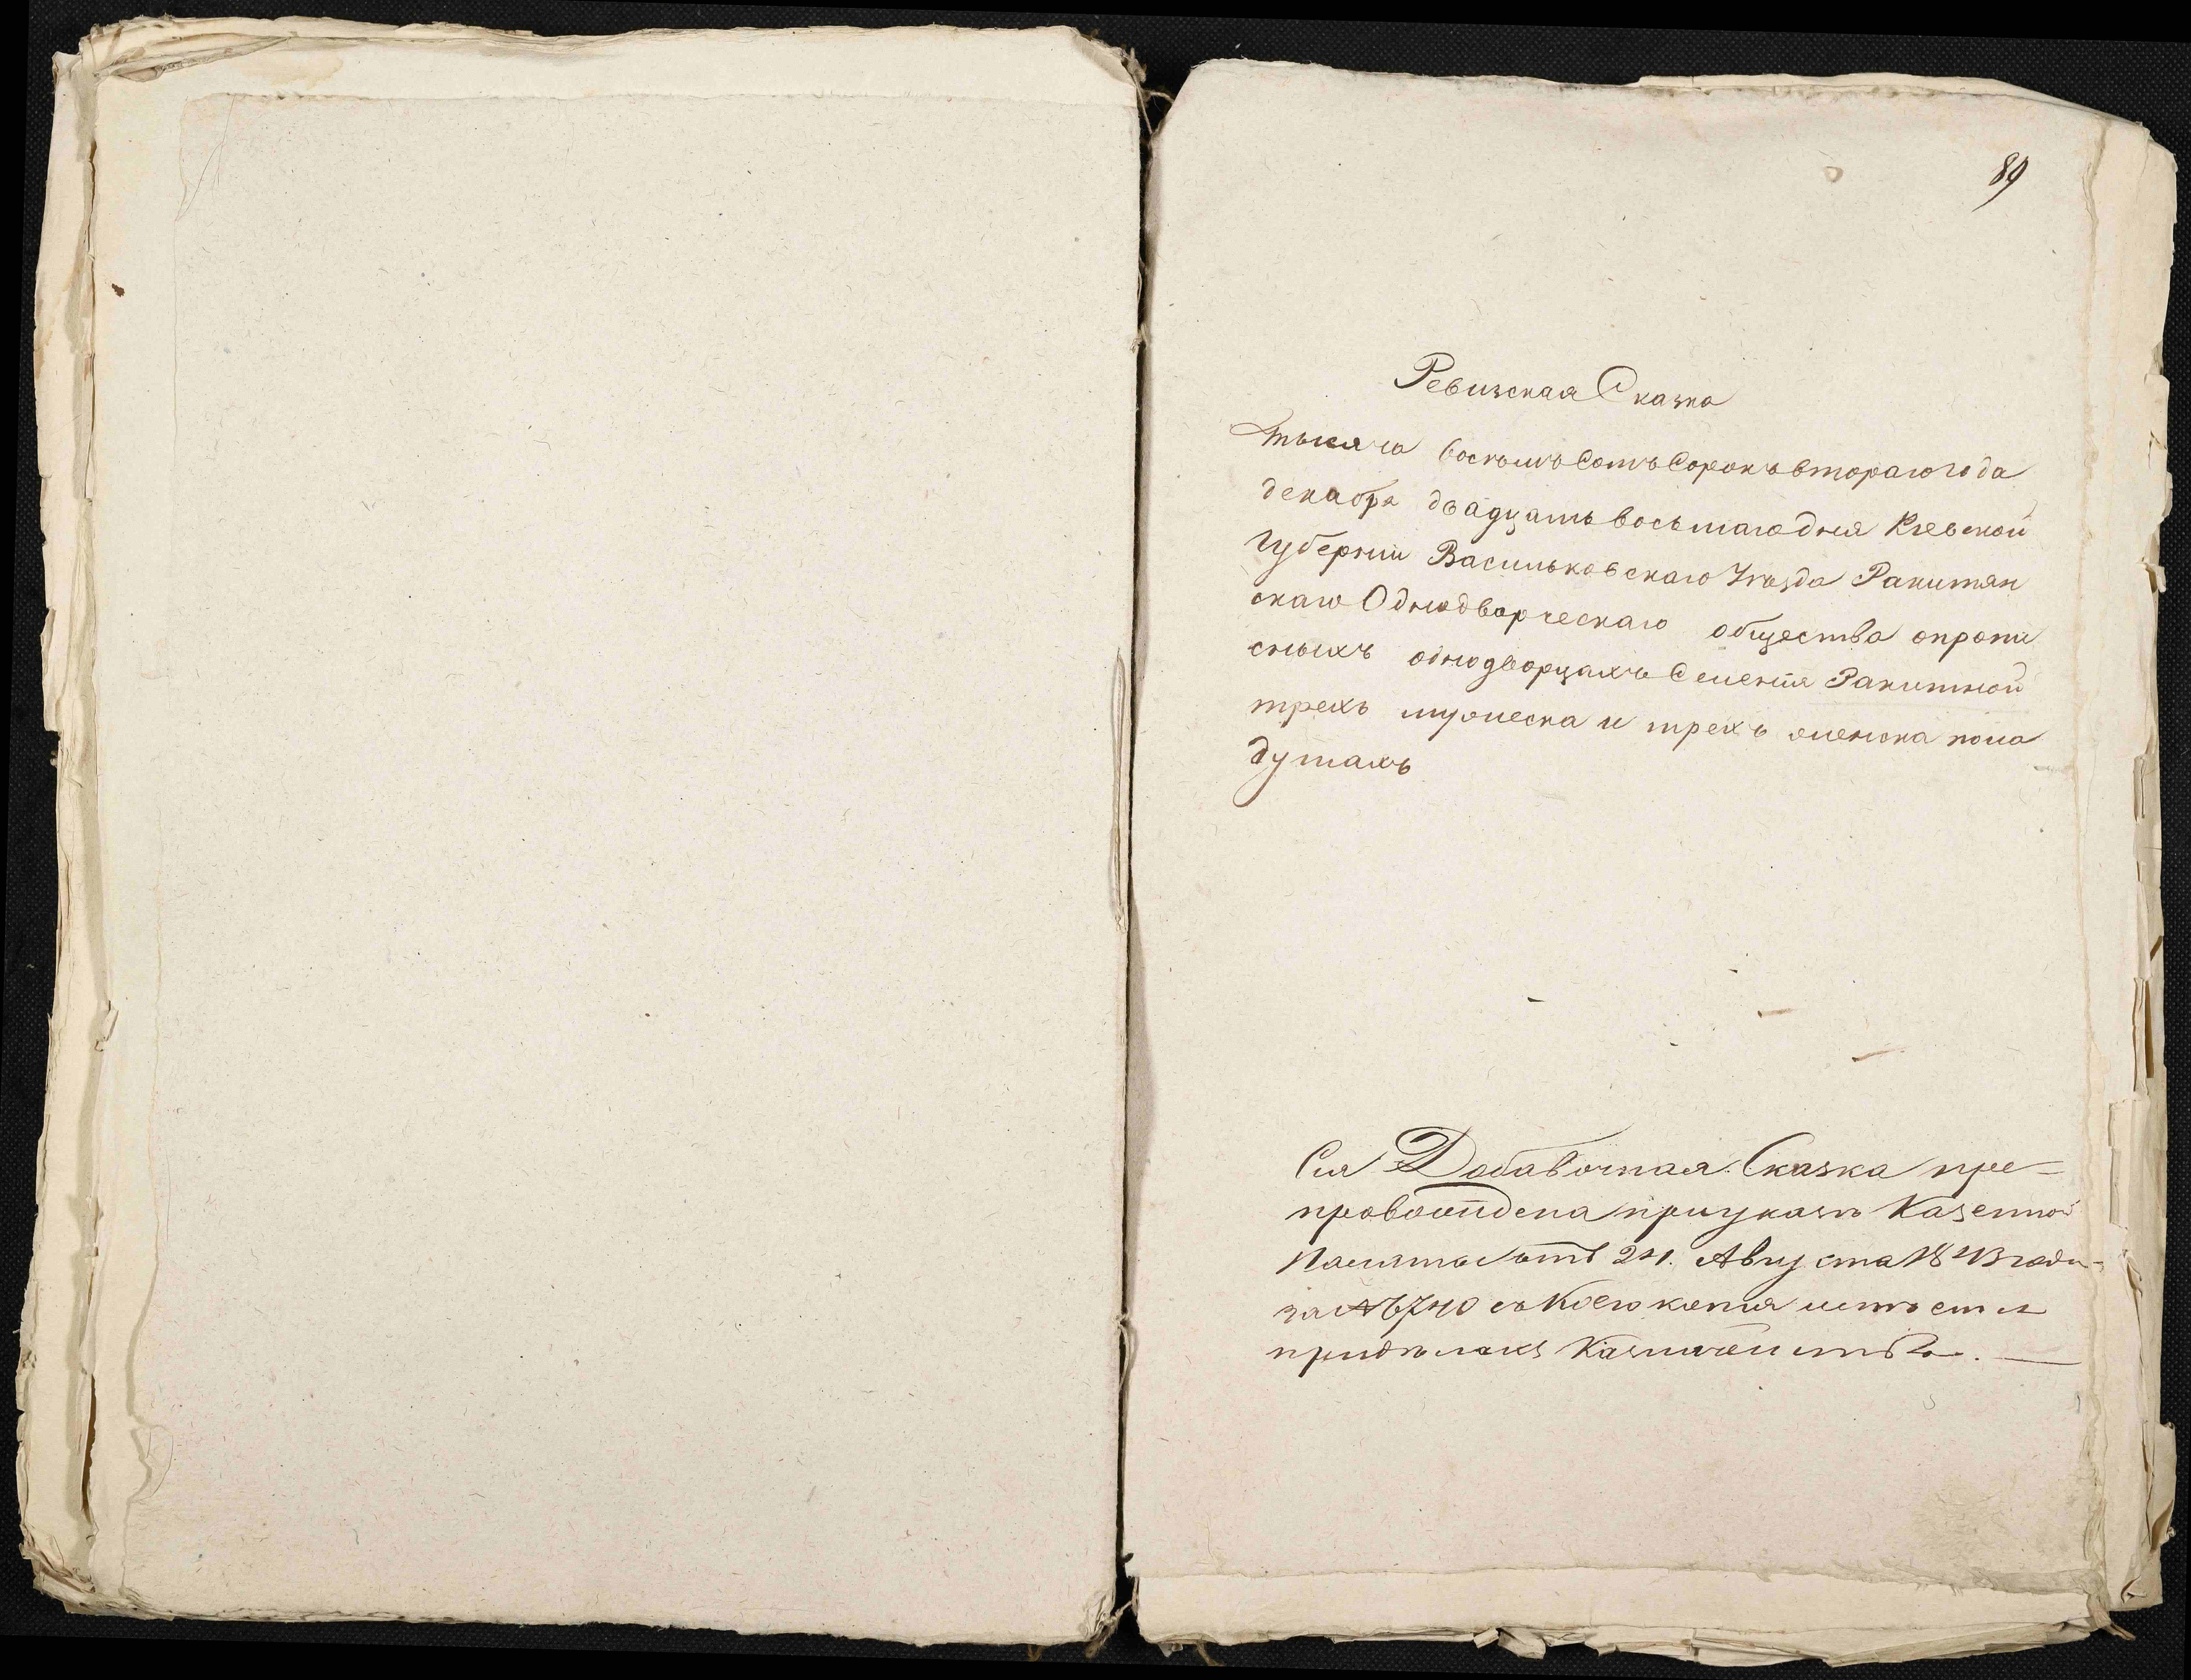 89
Ревизская Сказка
тысяча восемъ Сотъ Сорокъ втораго года
декабря двадцать восьмаго дня Кіевской
губерніи Васильковскаго Уезда Ракитян
скаго Однодворческаго общества опропи
сныхъ однодворцахъ Селенія Ракитной
трехъ мужеска и трехъ женска пола
душахъ
Сія Добавочная Сказка пре=
провождена при указѣ Казенной
Палаты отъ 24. Августа 1843 года
за № 6740 съ коего копія имѣется
при дѣлахъ Казначейства. —